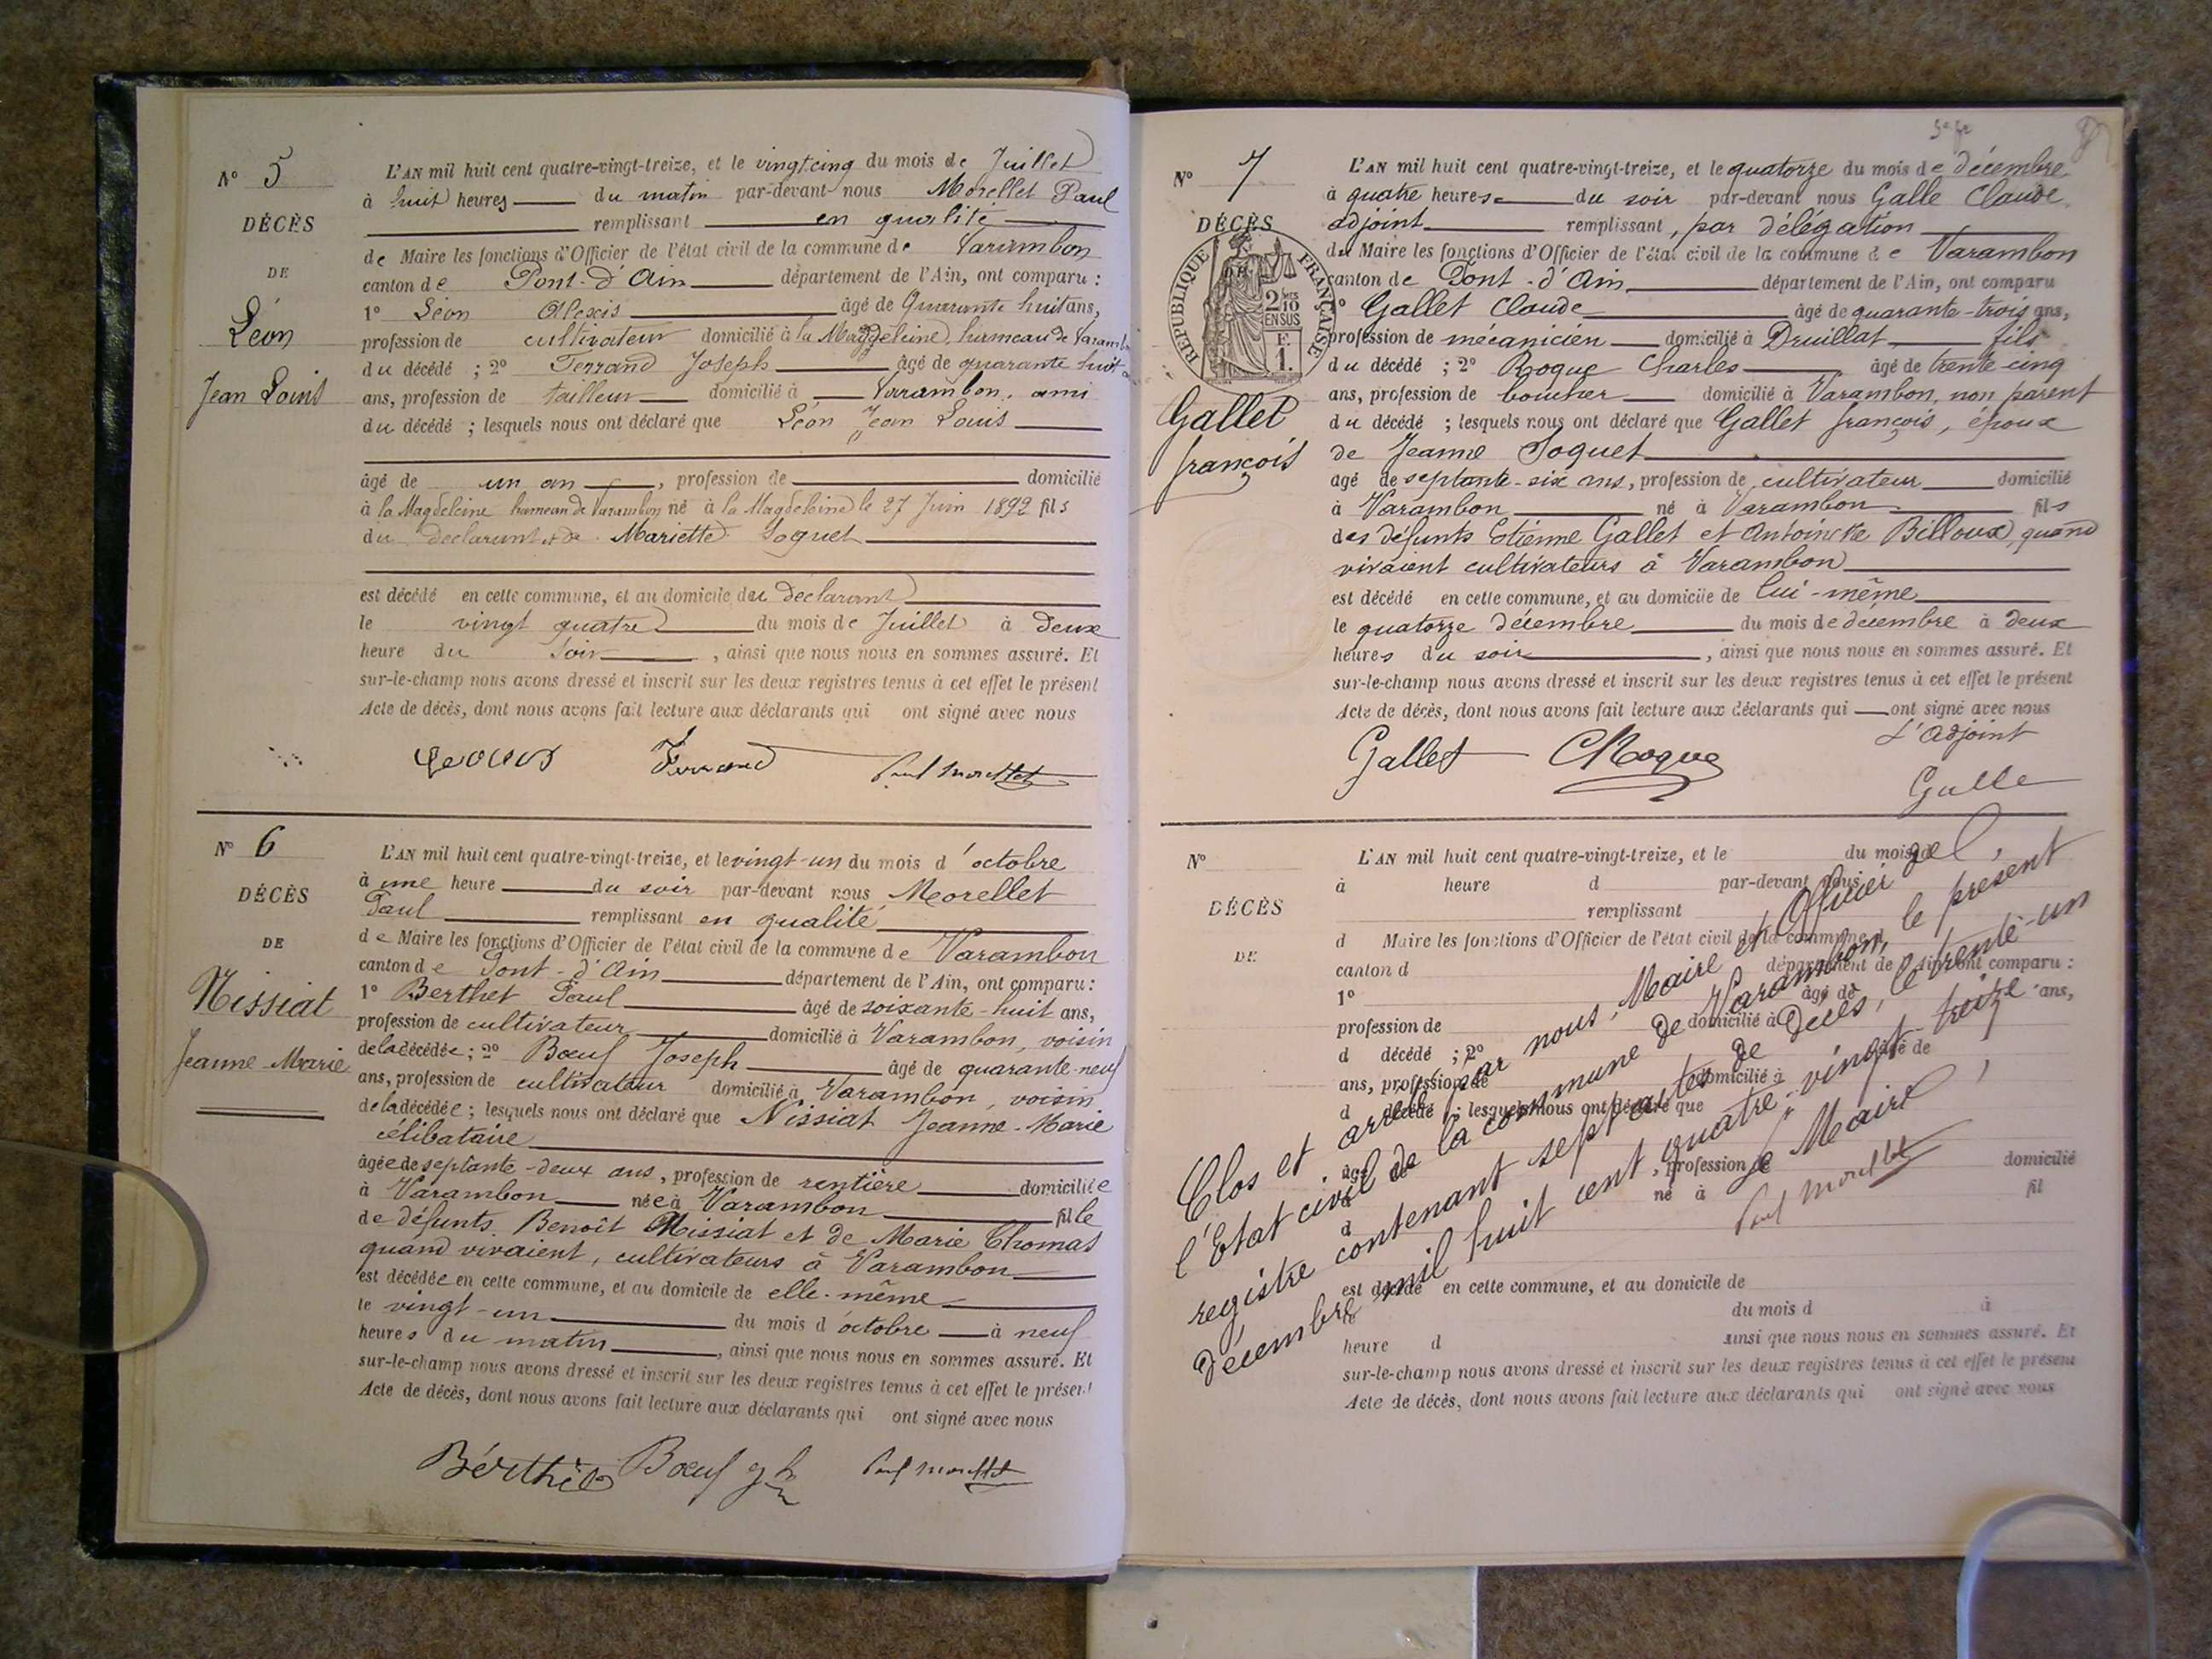 N° 5
DÉCÈS
DE
Léon
Jean Louis
L'AN mil huit cent quatre-vingt-treize, et le vingt cinq du mois de Juillet
à huit heures du matin par-devant nous Morellet Paul
remplissant en qualité
de Maire les fonctions d'Officier de l'état civil de la commune de Varambon
canton de Pont-d'Ain département de l'Ain, ont comparu :
1° Léon Alexis âgé de Quarante huit ans,
profession de cultivateur domicilié à la Magdeleine, hameau de Varambon
du décédé ; 2° Ferrand Joseph âgé de quarante huit
ans, profession de tailleur domicilié à Varambon, ami
du décédé ; lesquels nous ont déclaré que Léon Jean Louis
âgé de un an, profession de domicilié
à la Magdeleine hameau de Varambon né à la Magdeleine le 27 Juin 1892 fils
du déclarant et de Mariette Soquet
est décédé en cette commune, et au domicile du déclarant
le vingt quatre du mois de Juillet à deux
heure du soir, ainsi que nous nous en sommes assuré. Et
sur-le-champ nous avons dressé et inscrit sur les deux registres tenus à cet effet le présent
Acte de décès, dont nous avons fait lecture aux déclarants qui ont signé avec nous
Ferrand Paul Morellet
N° 6
DÉCÈS
DE
Nissiat
Jeanne-Marie
L'AN mil huit cent quatre-vingt-treize, et le vingt-un du mois d'octobre
à une heure du soir par-devant nous Morellet
Paul remplissant en qualité
de Maire les fonctions d'Officier de l'état civil de la commune de Varambon
canton de Pont-d'Ain département de l'Ain, ont comparu :
1° Berthet Paul âgé de soixante-huit ans,
profession de cultivateur domicilié à Varambon, voisin
de la décédée ; 2° Bœuf Joseph âgé de quarante-neuf
ans, profession de cultivateur domicilié à Varambon, voisin
de la décédée ; lesquels nous ont déclaré que Nissiat Jeanne-Marie
célibataire
âgée de septante-deux ans, profession de rentière domiciliée
à Varambon née à Varambon fille
de défunts Benoît Nissiat et de Marie Thomas
quand vivaient, cultivateurs à Varambon
est décédée en cette commune, et au domicile de elle-même
le vingt-un du mois d'octobre à neuf
heures du matin, ainsi que nous nous en sommes assuré. Et
sur-le-champ nous avons dressé et inscrit sur les deux registres tenus à cet effet le présent
Acte de décès, dont nous avons fait lecture aux déclarants qui ont signé avec nous
Bérthet Bœuf Paul Morellet
N° 7
DÉCÈS
RÉPUBLIQUE FRANÇAISE
2/10 EN SUS
F. 1.
Gallet
françois
L'AN mil huit cent quatre-vingt-treize, et le quatorze du mois de décembre
à quatre heures du soir par-devant nous Galle Claude
adjoint remplissant, par délégation
du Maire les fonctions d'Officier de l'état civil de la commune de Varambon
canton de Pont-d'Ain, département de l'Ain, ont comparu
1° Gallet Claude âgé de quarante-trois ans,
profession de mécanicien domicilié à Druillat fils
du décédé ; 2° Roque Charles âgé de trente-cinq
ans, profession de boucher domicilié à Varambon, non parent
du décédé ; lesquels nous ont déclaré que Gallet françois, époux
de Jeanne Soquet
agé de septante-six ans, profession de cultivateur domicilié
à Varambon né à Varambon fils
des défunts Etienne Gallet et Antoinette Billoud, quand
vivaient cultivateurs à Varambon
est décédé en cette commune, et au domicile de lui-même
le quatorze décembre du mois de décembre à deux
heures du soir, ainsi que nous nous en sommes assuré. Et
sur-le-champ nous avons dressé et inscrit sur les deux registres tenus à cet effet le présent
Acte de décès, dont nous avons fait lecture aux déclarants qui ont signé avec nous
L'Adjoint
Gallet CRoque
Galle
N°
DÉCÈS
DE
L'AN mil huit cent quatre-vingt-treize, et le du mois de
à heure d par-devant nous
remplissant
d Maire les fonctions d'Officier de l'état civil de la commune d
canton d département de l'Ain, ont comparu :
1° âgé de ans,
profession de domicilié à
d décédé ; 2° âgé de
ans, profession de domicilié à
d décédé ; lesquels nous ont déclaré que
âgé de , profession de domicilié
à né à fil
d
est décédé en cette commune, et au domicile de
le du mois d à
heure d ainsi que nous nous en sommes assuré. Et
sur-le-champ nous avons dressé et inscrit sur les deux registres tenus à cet effet le présent
Acte de décès, dont nous avons fait lecture aux déclarants qui ont signé avec nous
Clos et arrêté par nous, Maire et Officier de
l'Etat civil de la commune de Varambon, le présent
registre contenant sept actes de décès, le trente-un
décembre mil huit cent quatre-vingt-treize
Le Maire,
Paul Morellet